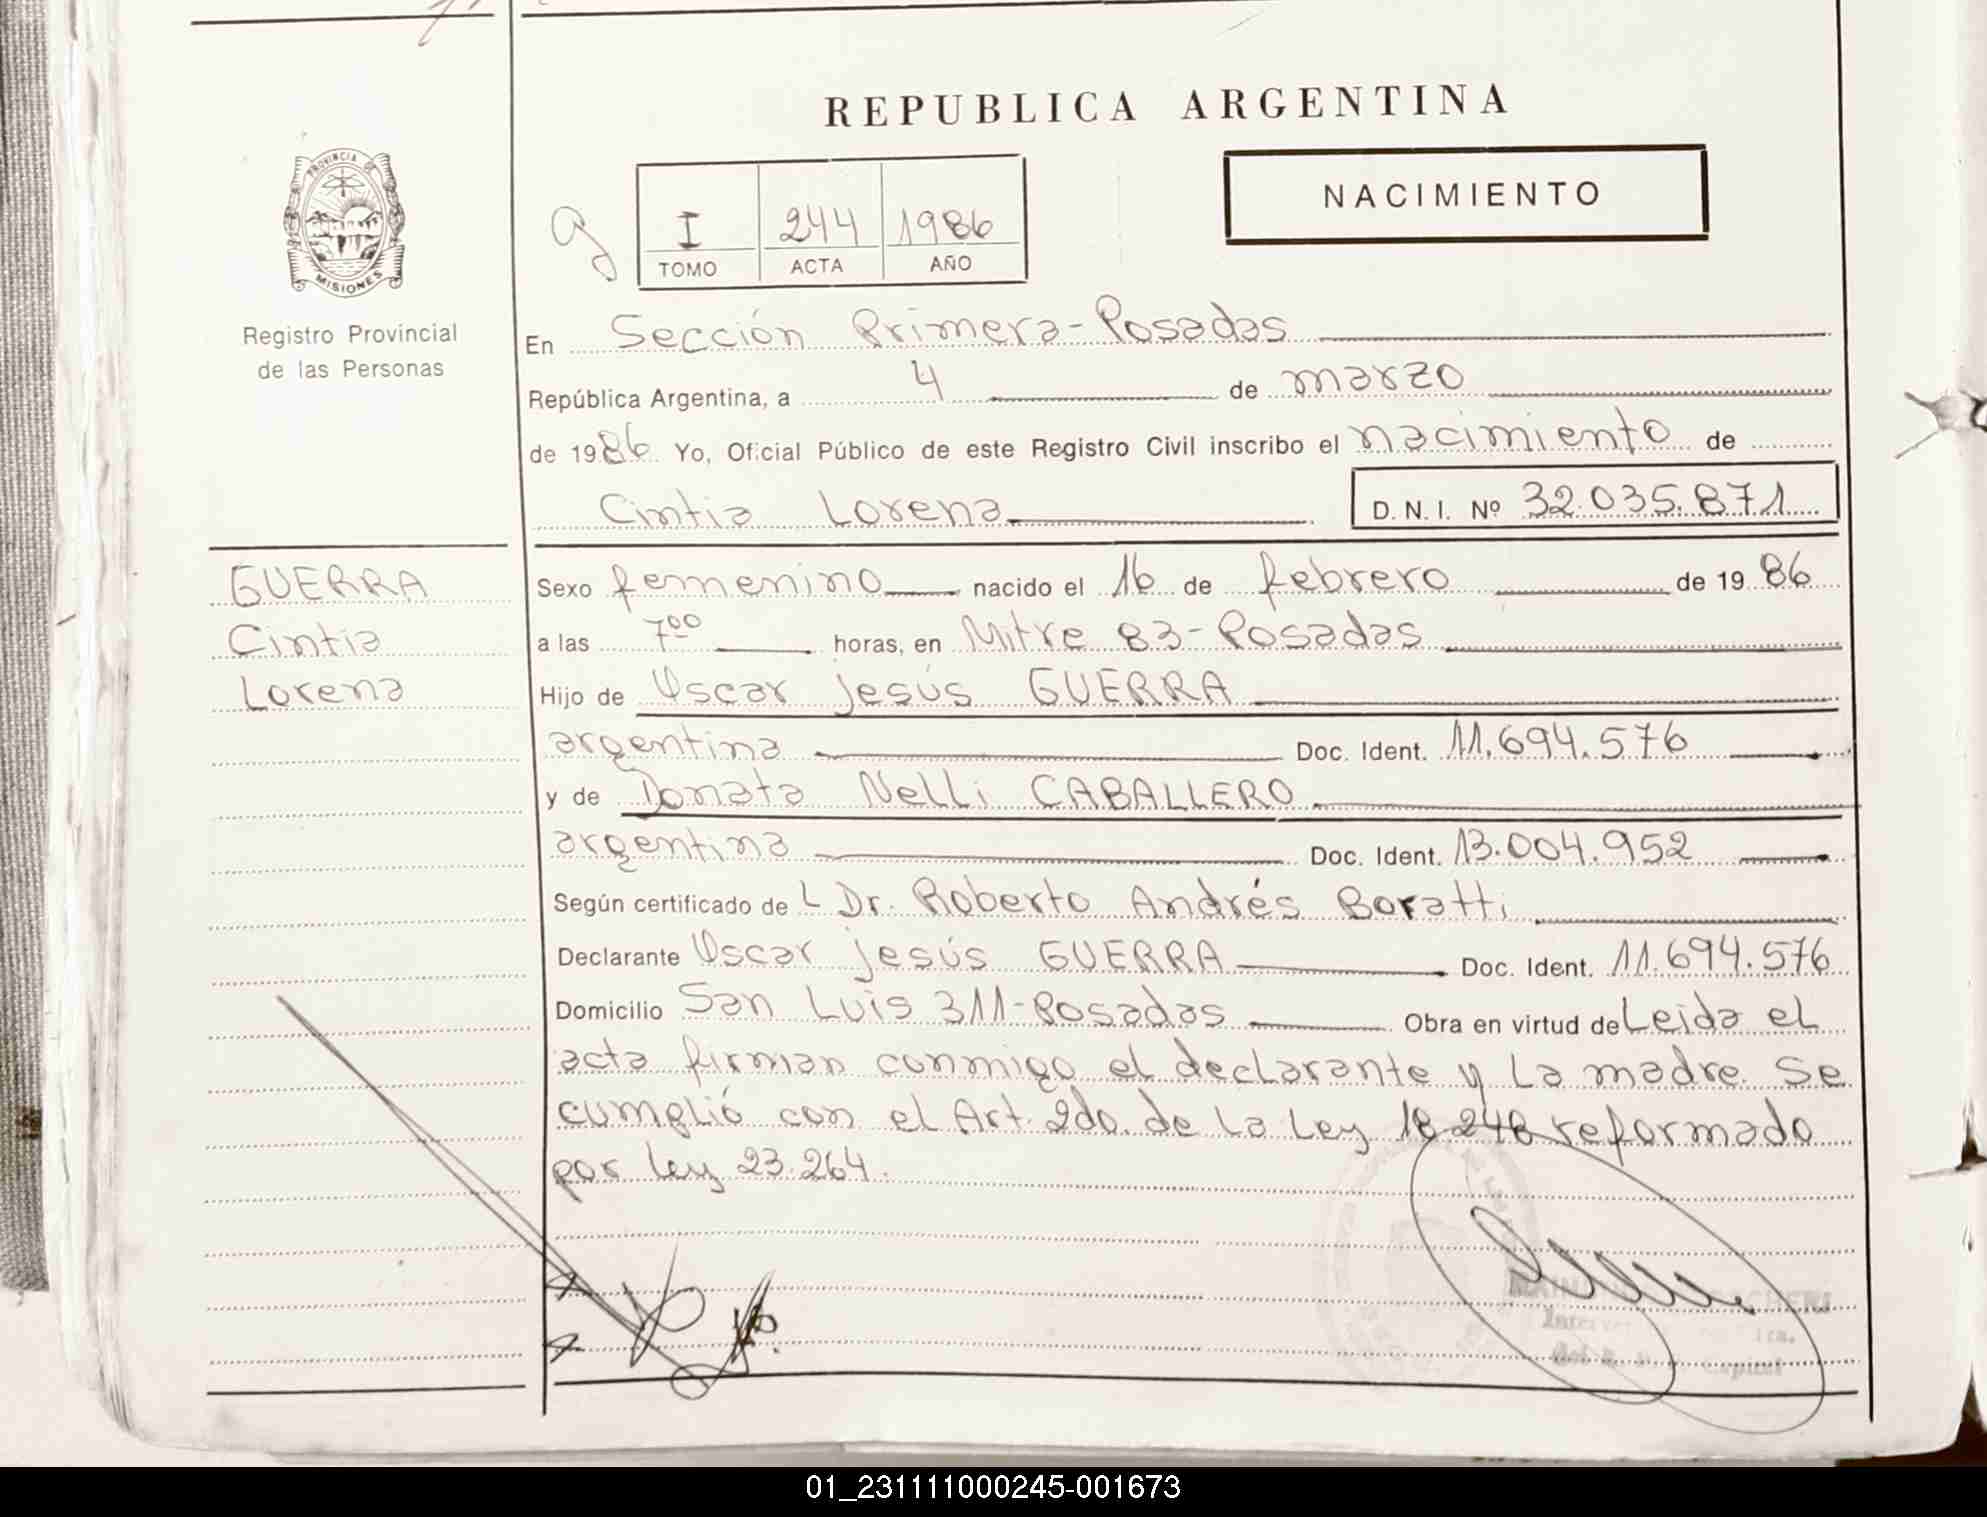 REPUBLICA ARGENTINA
NACIMIENTO
PROVINCIA DE
MISIONES
Registro Provincial
de las Personas
I 244 1986
TOMO ACTA AÑO
En Sección Primera-Posadas
República Argentina, a 4 de marzo
de 1986 Yo, Oficial Público de este Registro Civil inscribo el nacimiento de
Cintia Lorena D. N. I. Nº 32.035.871
GUERRA
Cintia
Lorena
Sexo femenino nacido el 16 de febrero de 1986
a las 7⁰⁰ horas, en Mitre 83-Posadas
Hijo de Oscar Jesús GUERRA
argentina Doc. Ident. 11.694.576
y de Donata Nelli CABALLERO
argentina Doc. Ident. 13.004.952
Según certificado de L Dr. Roberto Andrés Boratti
Declarante Oscar Jesús GUERRA Doc. Ident. 11.694.576
Domicilio San Luis 311-Posadas Obra en virtud de Leida el
acta firman conmigo el declarante y La madre. Se
cumplió con el Art. 2do. de La Ley 18.248 reformado
por ley 23.264.
Capital
01_231111000245-001673